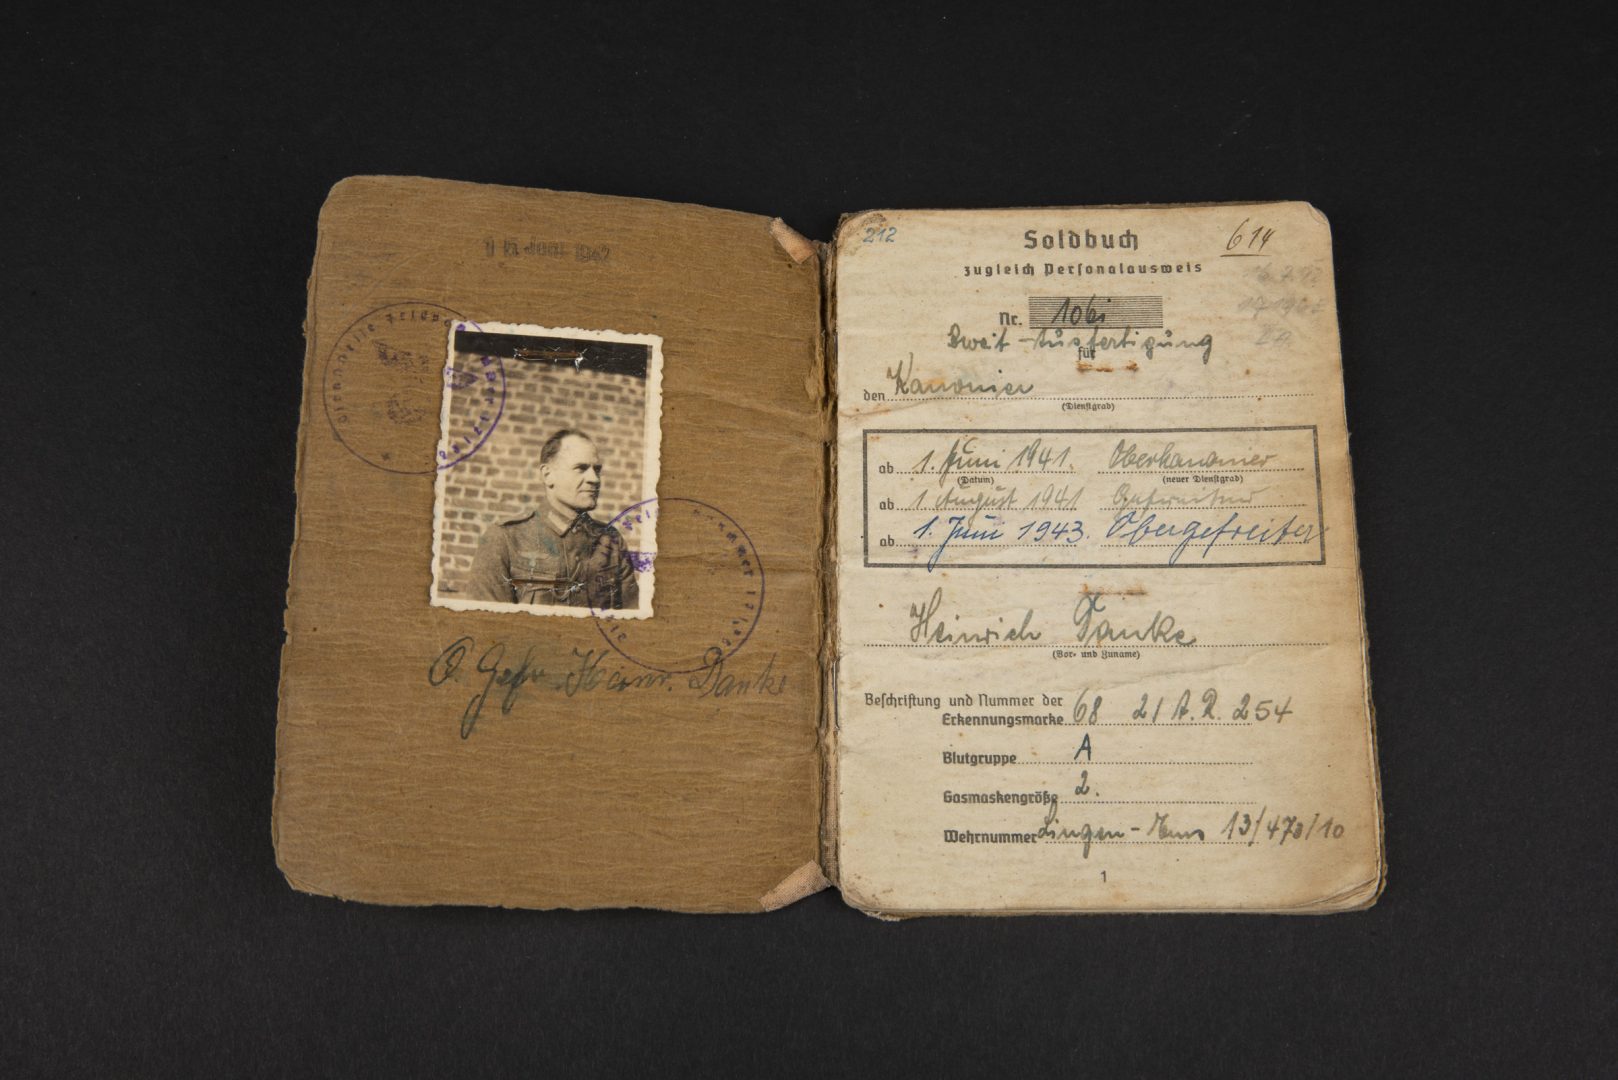 1942
Dienststelle Feldpost
O. Gefr. Heinr. Danke
212
Soldbuch
614
zugleich Personalausweis
Nr. 106i
Zweit-Ausfertigung
für
den Kanonier
(Dienstgrad)
ab 1. Juni 1941. Oberkanonier
(Datum) (neuer Dienstgrad)
ab 1 August 1941 Gefreiter
ab 1. Juni 1943. Obergefreiter
Heinrich Danke
(Vor- und Zuname)
Beschriftung und Nummer der
Erkennungsmarke 68 21 A. R. 254
Blutgruppe A
Gasmaskengröße 2.
Wehrnummer Lingen-Ems 13/473/10
1